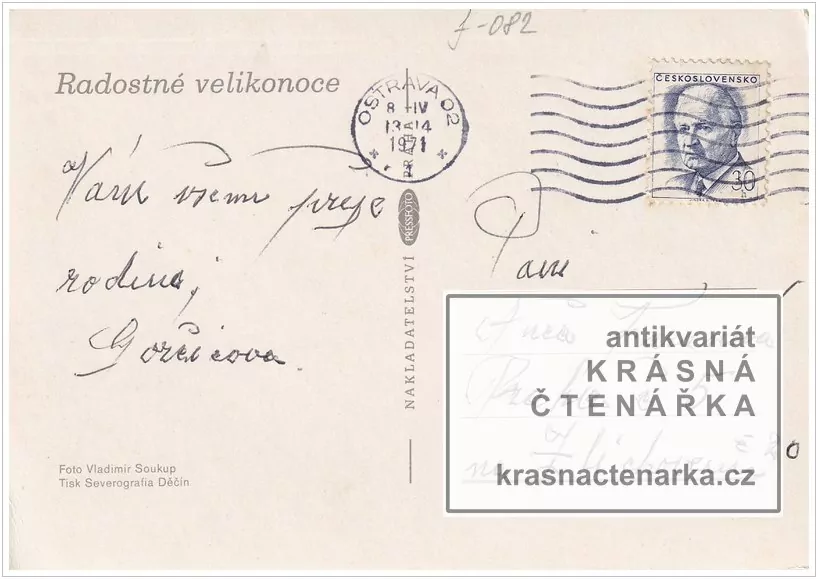 f-082
Radostné velikonoce
OSTRAVA 02
8 -IV
13-14
1971
ČESKOSLOVENSKO
30
h
Vám všem přeje
rodina
Gorčicova
Paní
PRAHA
PRESSFOTO
NAKLADATELSTVÍ
antikvariát
KRÁSNÁ
ČTENÁŘKA
krasnactenarka.cz
Foto Vladimír Soukup
Tisk Severografia Děčín